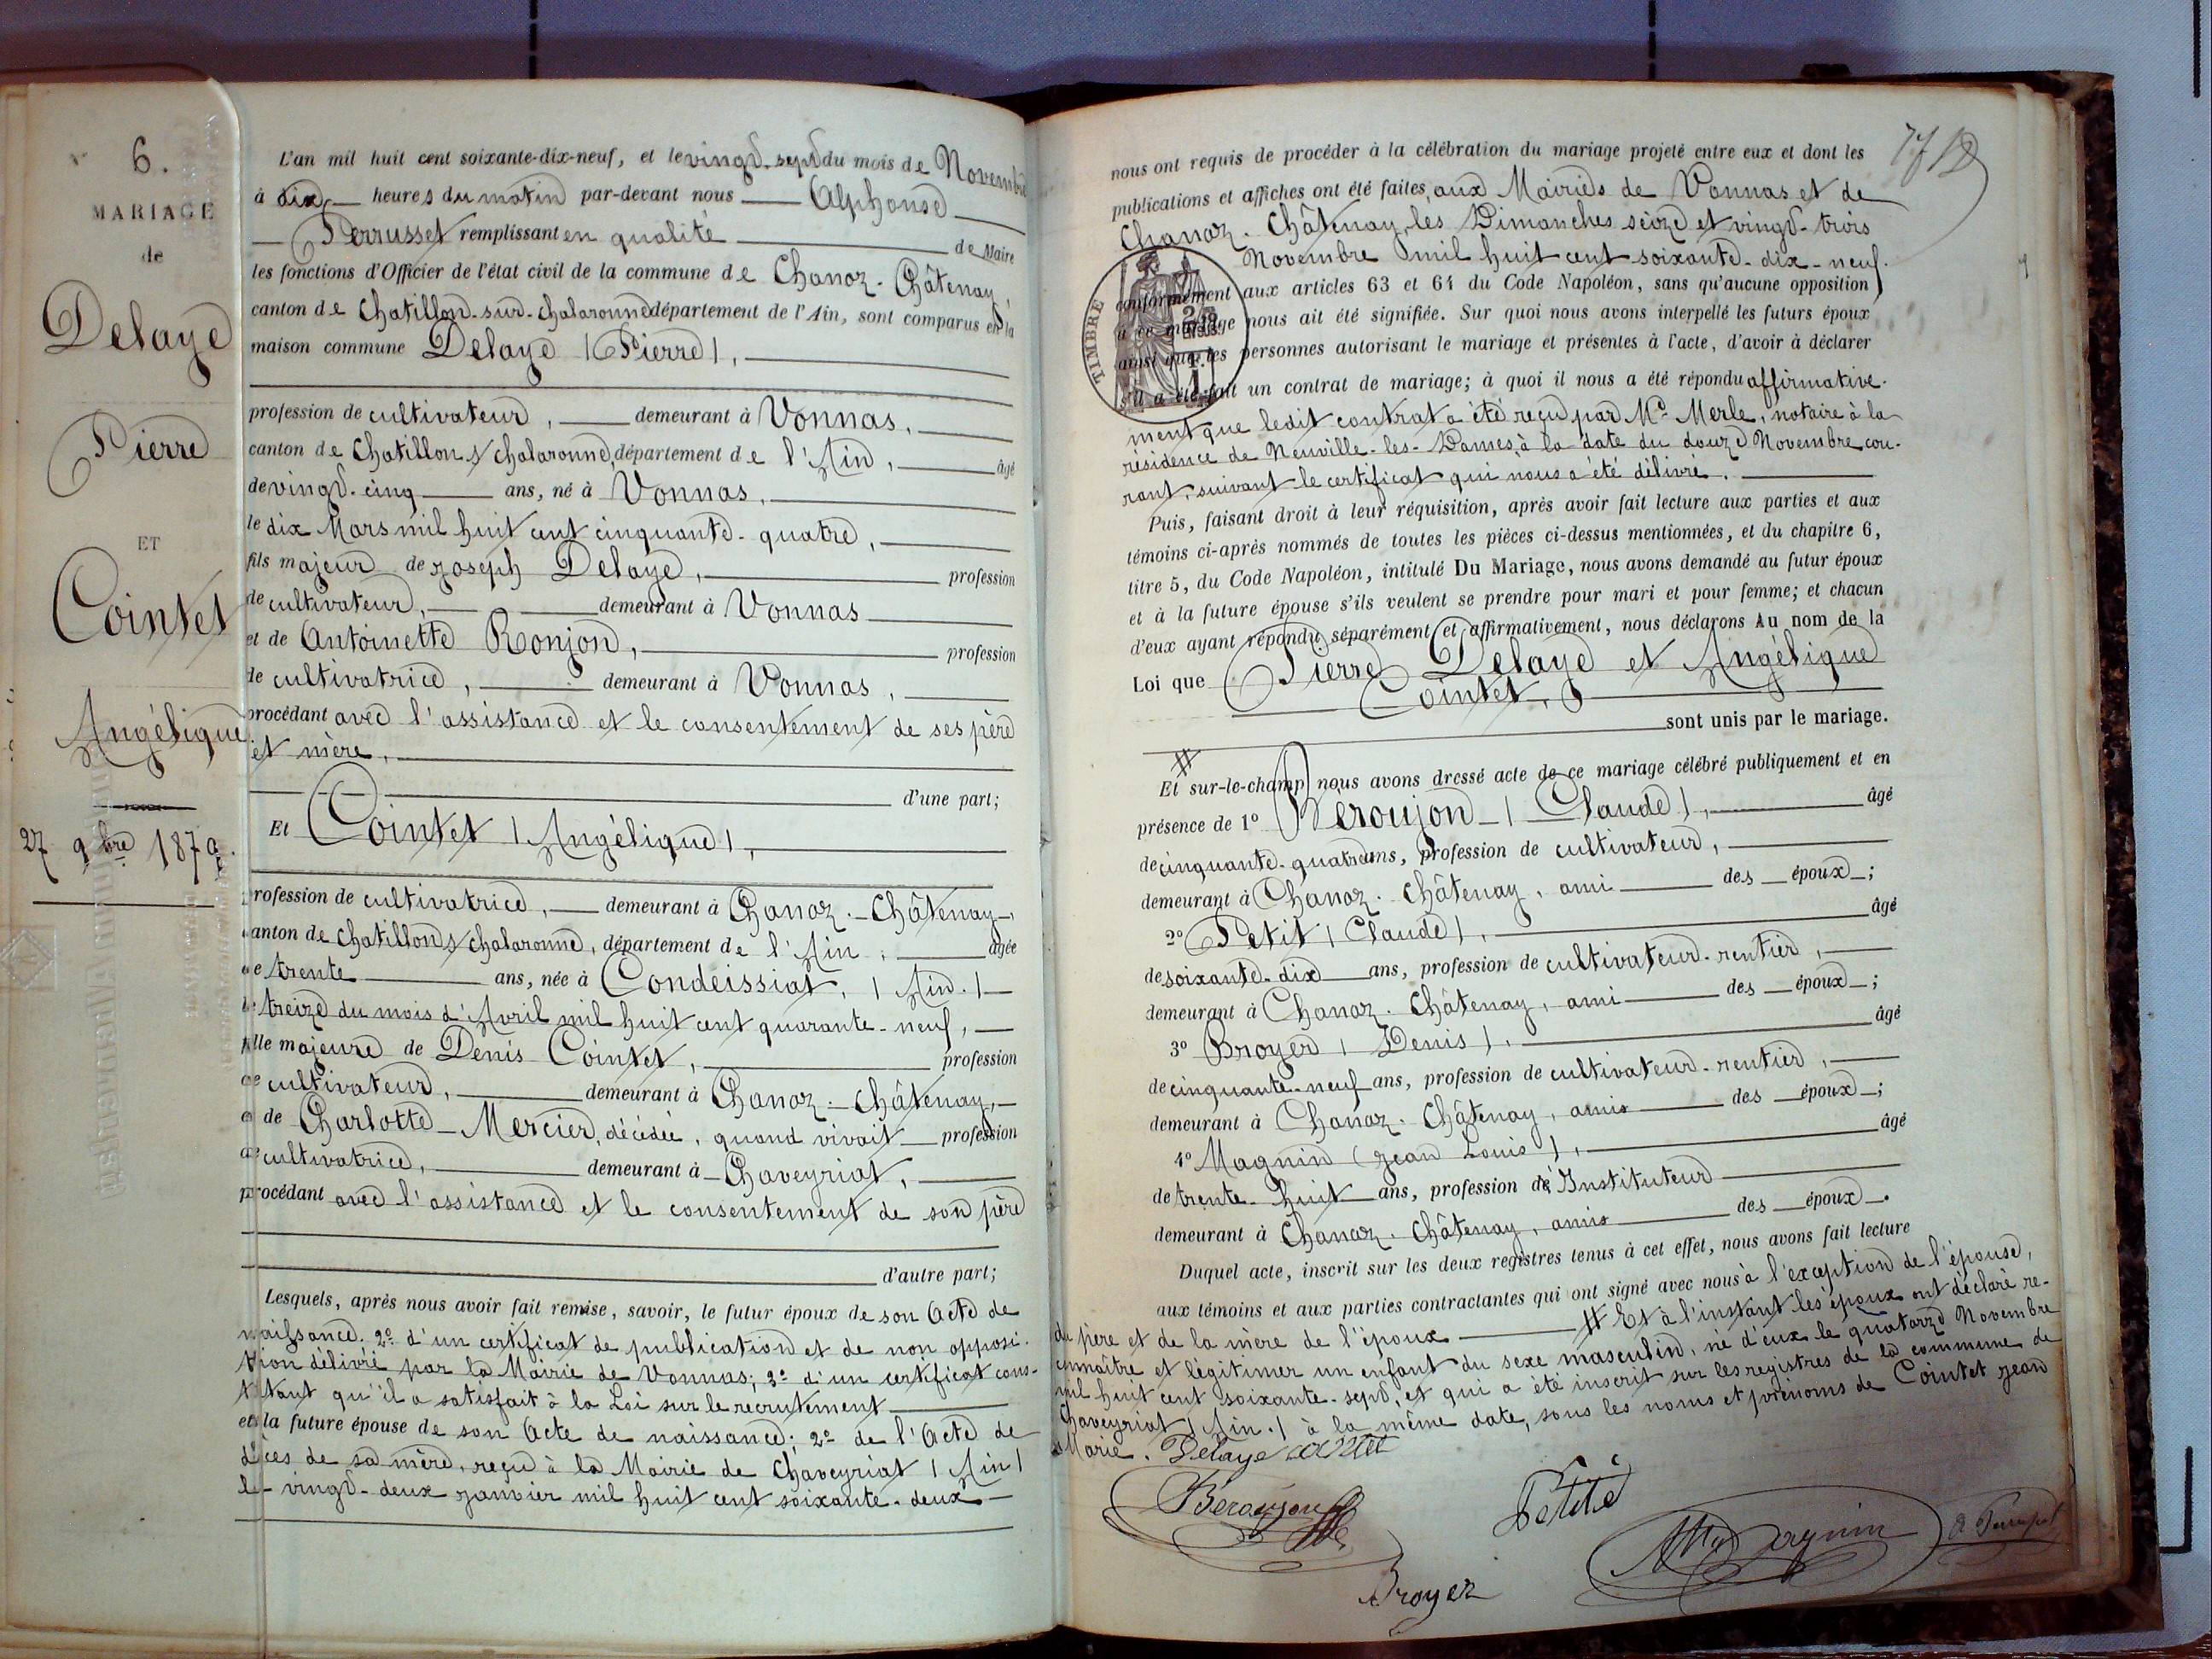 6.
MARIAGE
de
Delaye
Pierre
ET
Cointet
Angélique
27 9bre 1879.
L'an mil huit cent soixante-dix-neuf, et le vingt-sept du mois de Novembre
à dix heures du matin par-devant nous Alphonse
Perrusset remplissant en qualité de Maire
les fonctions d'Officier de l'état civil de la commune de Chanoz-Châtenay,
canton de Chatillon-sur-Chalaronne département de l'Ain, sont comparus en la
maison commune Delaye (Pierre),
profession de cultivateur, demeurant à Vonnas,
canton de Chatillon s/ Chalaronne, département de l'Ain, âgé
de vingt-cinq ans, né à Vonnas,
le dix Mars mil huit cent cinquante-quatre,
fils majeur de Joseph Delaye, profession
de cultivateur, demeurant à Vonnas
et de Antoinette Ronjon, profession
de cultivatrice, demeurant à Vonnas,
procédant avec l'assistance et le consentement de ses père
et mère,
d'une part;
Et Cointet (Angélique),
profession de cultivatrice, demeurant à Chanoz-Châtenay,
canton de Chatillon s/ Chalaronne, département de l'Ain, âgée
de trente ans, née à Condeissiat, (Ain.)
le treize du mois d'Avril mil huit cent quarante-neuf,
fille majeure de Denis Cointet, profession
de cultivateur, demeurant à Chanoz-Châtenay,
et de Charlotte Mercier, décédée, quand vivait profession
de cultivatrice, demeurant à Chaveyriat,
procédant avec l'assistance et le consentement de son père
d'autre part;
Lesquels, après nous avoir fait remise, savoir, le futur époux de son Acte de
naissance. 2º d'un certificat de publication et de non opposi-
tion délivré par la Mairie de Vonnas; 3º d'un certificat cons-
tatant qu'il a satisfait à la Loi sur le recrutement
et la future épouse de son Acte de naissance; 2º de l'Acte de
décès de sa mère, reçu à la Mairie de Chaveyriat (Ain)
le vingt-deux Janvier mil huit cent soixante-deux
nous ont requis de procéder à la célébration du mariage projeté entre eux et dont les
publications et affiches ont été faites, aux Mairies de Vonnas et de
Chanoz-Châtenay, les Dimanches seize et vingt-trois
Novembre mil huit cent soixante-dix-neuf.
conformément aux articles 63 et 64 du Code Napoléon, sans qu'aucune opposition
à ce mariage nous ait été signifiée. Sur quoi nous avons interpellé les futurs époux
ainsi que les personnes autorisant le mariage et présentes à l'acte, d'avoir à déclarer
s'il a été fait un contrat de mariage; à quoi il nous a été répondu affirmative-
ment que ledit contrat a été reçu par Me Merle, notaire à la
résidence de Neuville-les-Dames, à la date du douze Novembre cou-
rant, suivant le certificat qui nous a été délivré.
TIMBRE
Puis, faisant droit à leur réquisition, après avoir fait lecture aux parties et aux
témoins ci-après nommés de toutes les pièces ci-dessus mentionnées, et du chapitre 6,
titre 5, du Code Napoléon, intitulé Du Mariage, nous avons demandé au futur époux
et à la future épouse s'ils veulent se prendre pour mari et pour femme; et chacun
d'eux ayant répondu séparément et affirmativement, nous déclarons Au nom de la
Loi que Pierre Delaye et Angélique
Cointet,
sont unis par le mariage.
Et sur-le-champ nous avons dressé acte de ce mariage célébré publiquement et en
présence de 1º Beroujon (Claude), âgé
de cinquante-quatre ans, profession de cultivateur,
demeurant à Chanoz-Châtenay, ami des époux;
2º Petit (Claude), âgé
de soixante-dix ans, profession de cultivateur-rentier,
demeurant à Chanoz-Châtenay, ami des époux;
3º Broyer (Denis), âgé
de cinquante-neuf ans, profession de cultivateur-rentier,
demeurant à Chanoz-Châtenay, amis des époux;
4º Magnin (Jean Louis), âgé
de trente-huit ans, profession d'Instituteur
demeurant à Chanoz-Châtenay, amis des époux.
Duquel acte, inscrit sur les deux registres tenus à cet effet, nous avons fait lecture
aux témoins et aux parties contractantes qui ont signé avec nous à l'exception de l'épouse,
du père et de la mère de l'époux # Et à l'instant les époux ont déclaré re-
connaître et légitimer un enfant du sexe masculin, né d'eux le quatorze Novembre
mil huit cent soixante-sept, et qui a été inscrit sur les registres de la commune de
Chaveyriat (Ain.) à la même date, sous les noms et prénoms de Cointet Jean
Marie. Delaye Cointet
Beroujon
Petit
Magnin
A Perrusset
Broyer